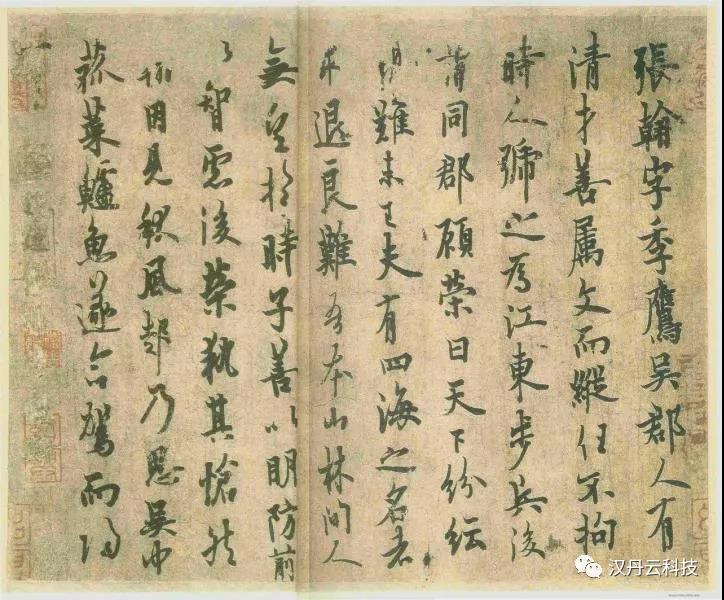 張翰字季鷹吳郡人有
清才善属文而縱任不拘
時人號之為江東步兵後
謂同郡顧榮曰天下紛紜
禍難未已夫有四海之名者
求退良難吾本山林間人
無望於時子善以明防前
以智慮後榮執其愴然
翰因見秋風起乃思吳中
菰菜鱸魚遂命駕而歸
汉丹云科技